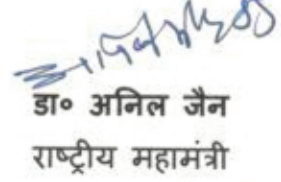 डा० अनिल जैन
राष्ट्रीय महामंत्री